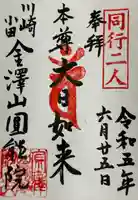 奉拝
同行二人
令和五年
六月廿五日
本尊大日如来
川崎
小田
金澤山圓能院